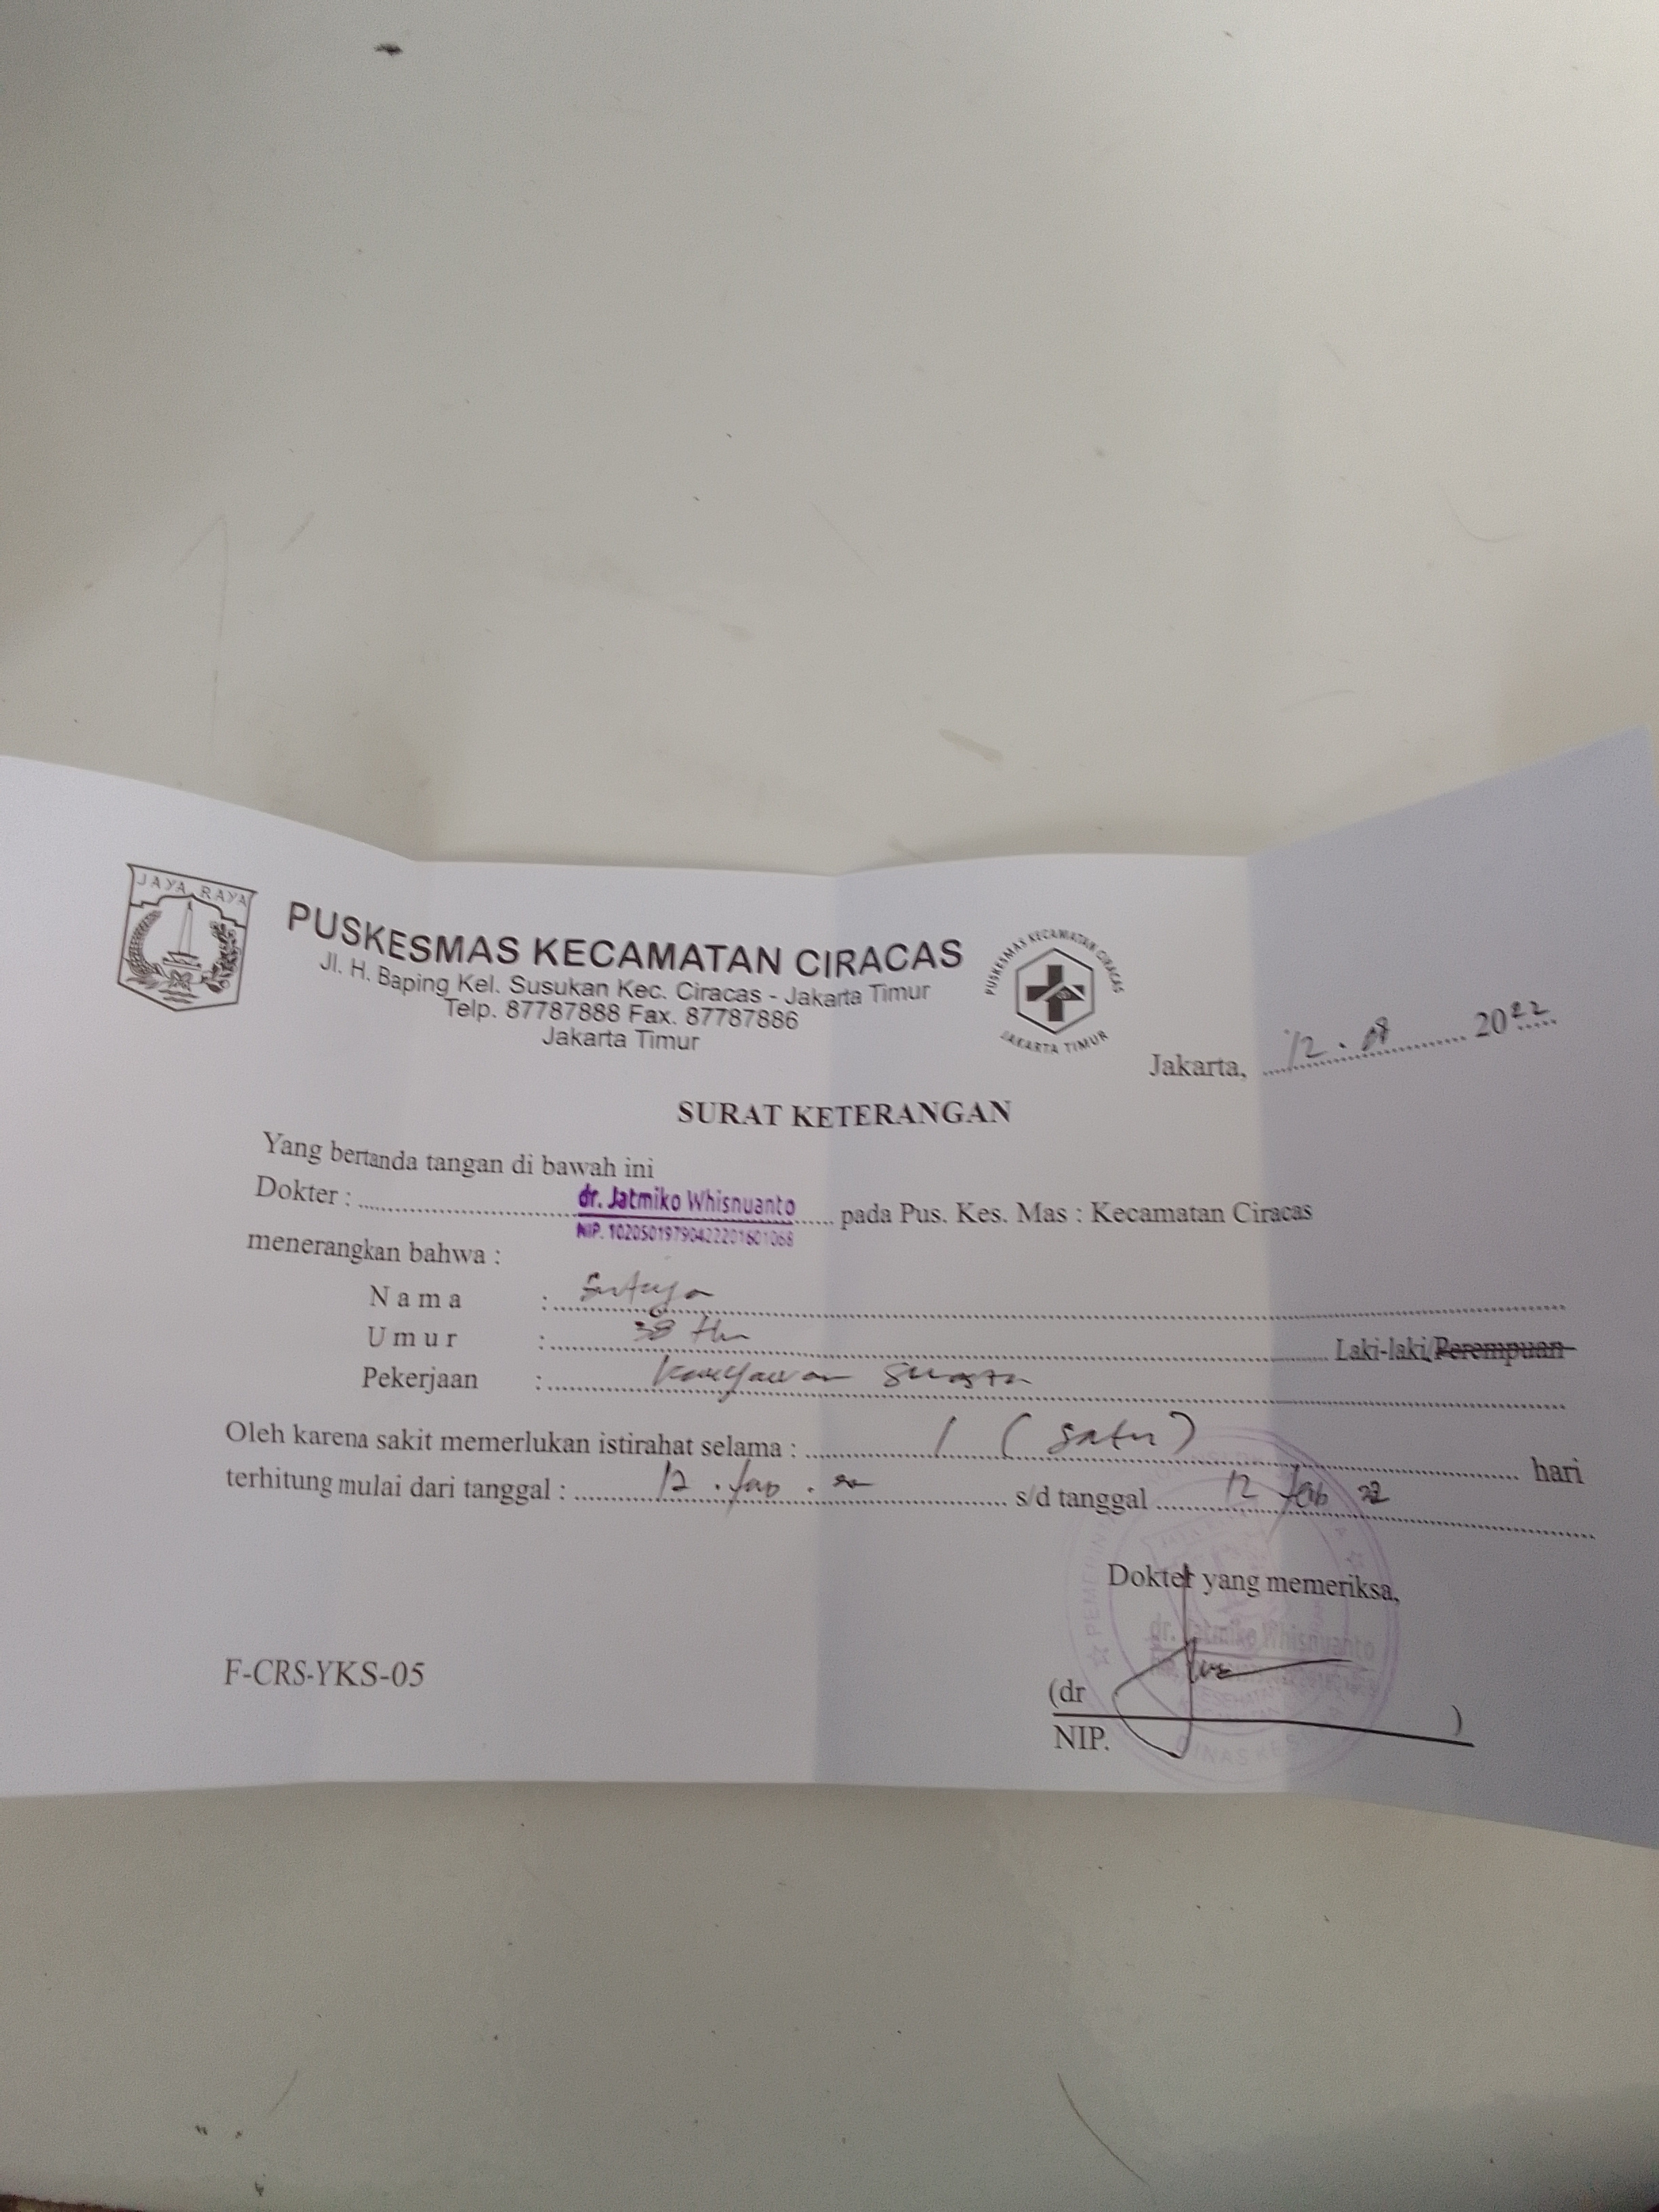 JAYA RAYA
PUSKESMAS KECAMATAN CIRACAS
Jl. H. Baping Kel. Susukan Kec. Ciracas - Jakarta Timur
Telp. 87787888 Fax. 87787886
Jakarta Timur
PUSKESMAS KECAMATAN CIRACAS
JAKARTA TIMUR
Jakarta, 12 . 2022
SURAT KETERANGAN
Yang bertanda tangan di bawah ini
Dokter : dr. Jatmiko Whisnuanto pada Pus. Kes. Mas : Kecamatan Ciracas
NIP. 102050197904222201601068
menerangkan bahwa :
Nama :
Umur : 38 thn Laki-laki/Perempuan
Pekerjaan : Karyawan Swasta
Oleh karena sakit memerlukan istirahat selama : 1 (satu) hari
terhitung mulai dari tanggal : 12 . s/d tanggal 12 feb 22
Dokter yang memeriksa,
dr. Jatmiko Whisnuanto
(dr )
NIP.
F-CRS-YKS-05